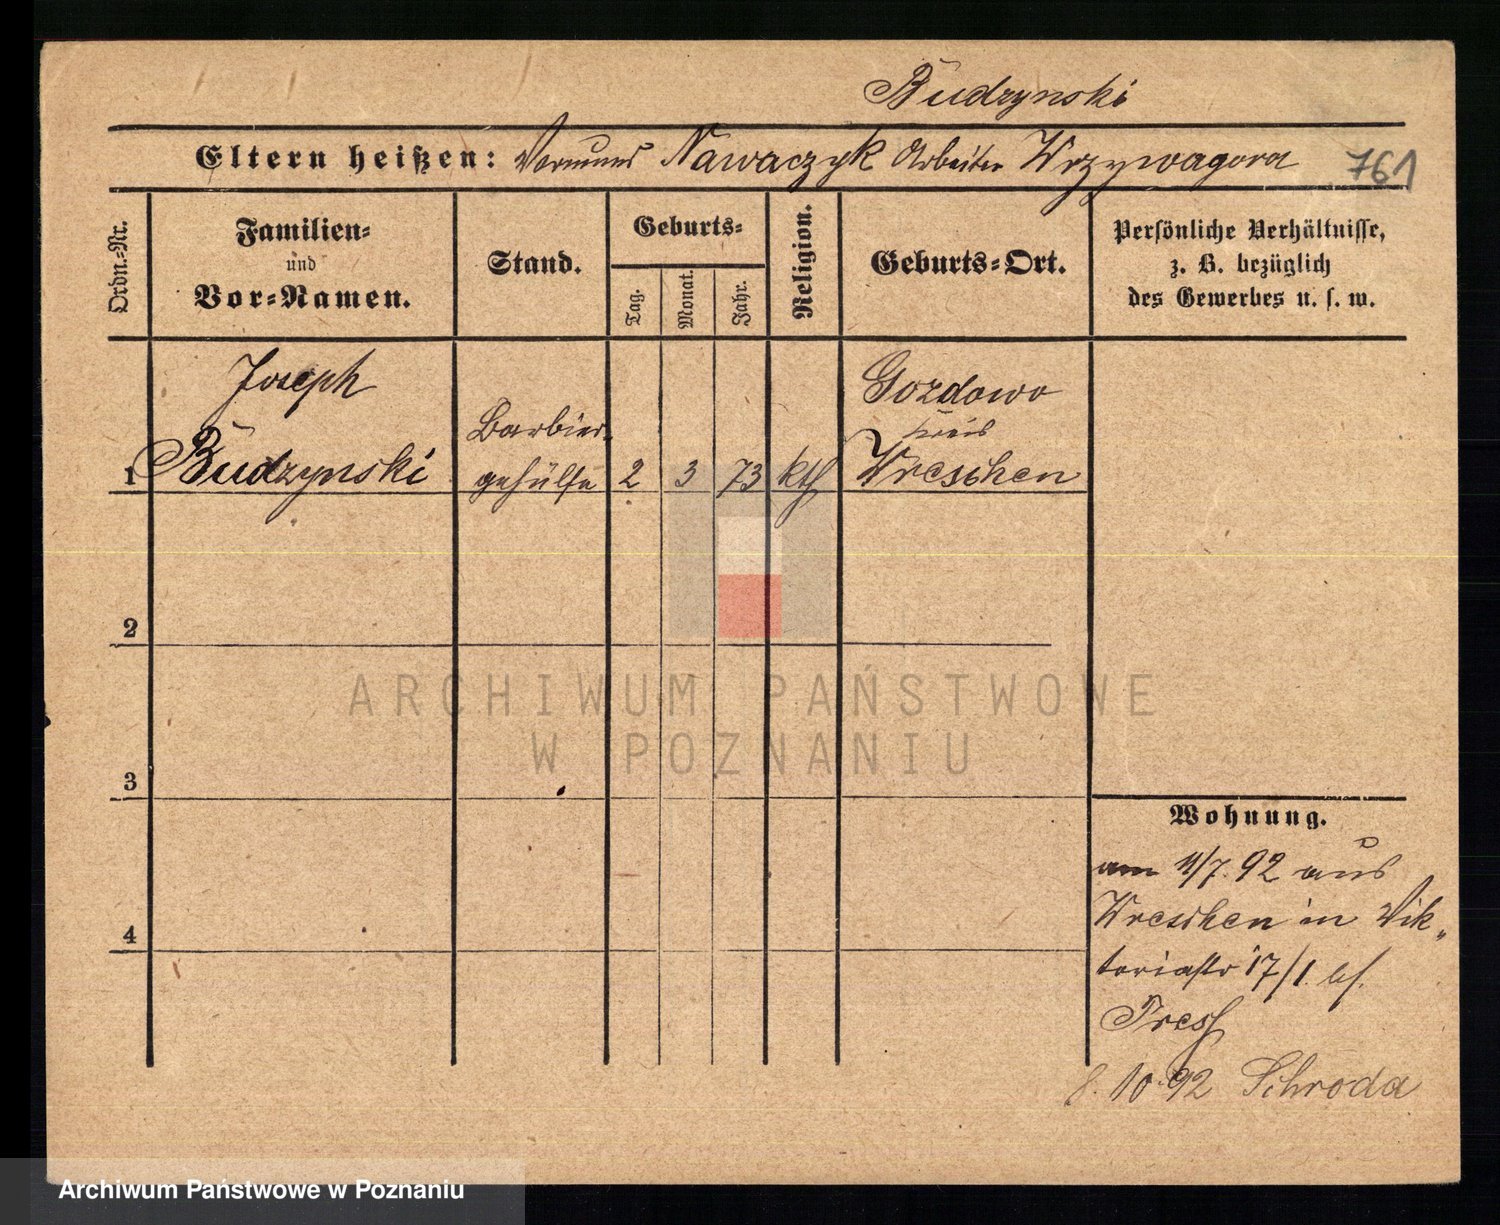 Budzynski
Eltern heißen: Vormund Nawaczyk Arbeiter Wrzywagora 761
Ordn.-Nr.
Familien-
und
Vor-Namen.
Stand.
Geburts-
Tag.
Monat.
Jahr.
Religion.
Geburts-Ort.
Persönliche Verhältnisse,
z. B. bezüglich
des Gewerbes u. s. w.
Joseph
1 Budzynski
Barbier-
gehülfe
2 3 73 kth
Gozdowo
Kreis
Wreschen
2
3
4
Wohnung.
am 11/7. 92 aus
Wreschen in Vik-
toriastr 17/I. bs.
8. 10. 92 Schroda
ARCHIWUM PAŃSTWOWE
W POZNANIU
Archiwum Państwowe w Poznaniu